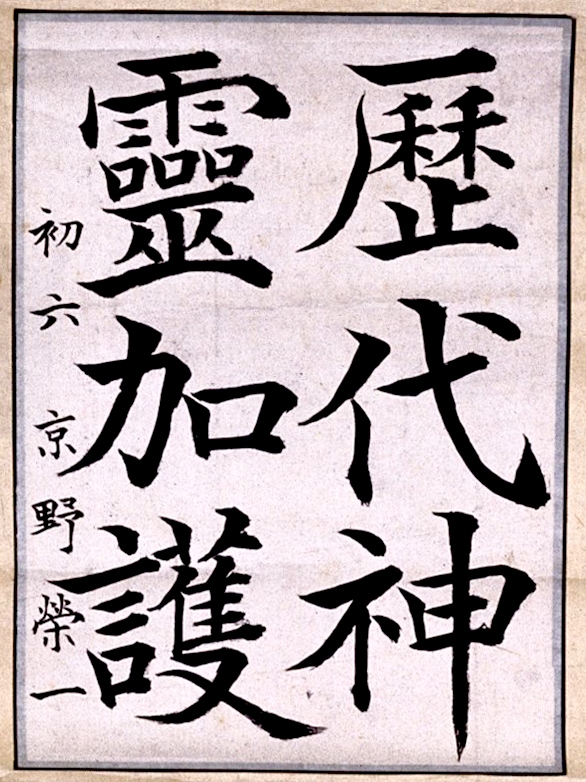 歷代神
靈加護
初六 京野榮一